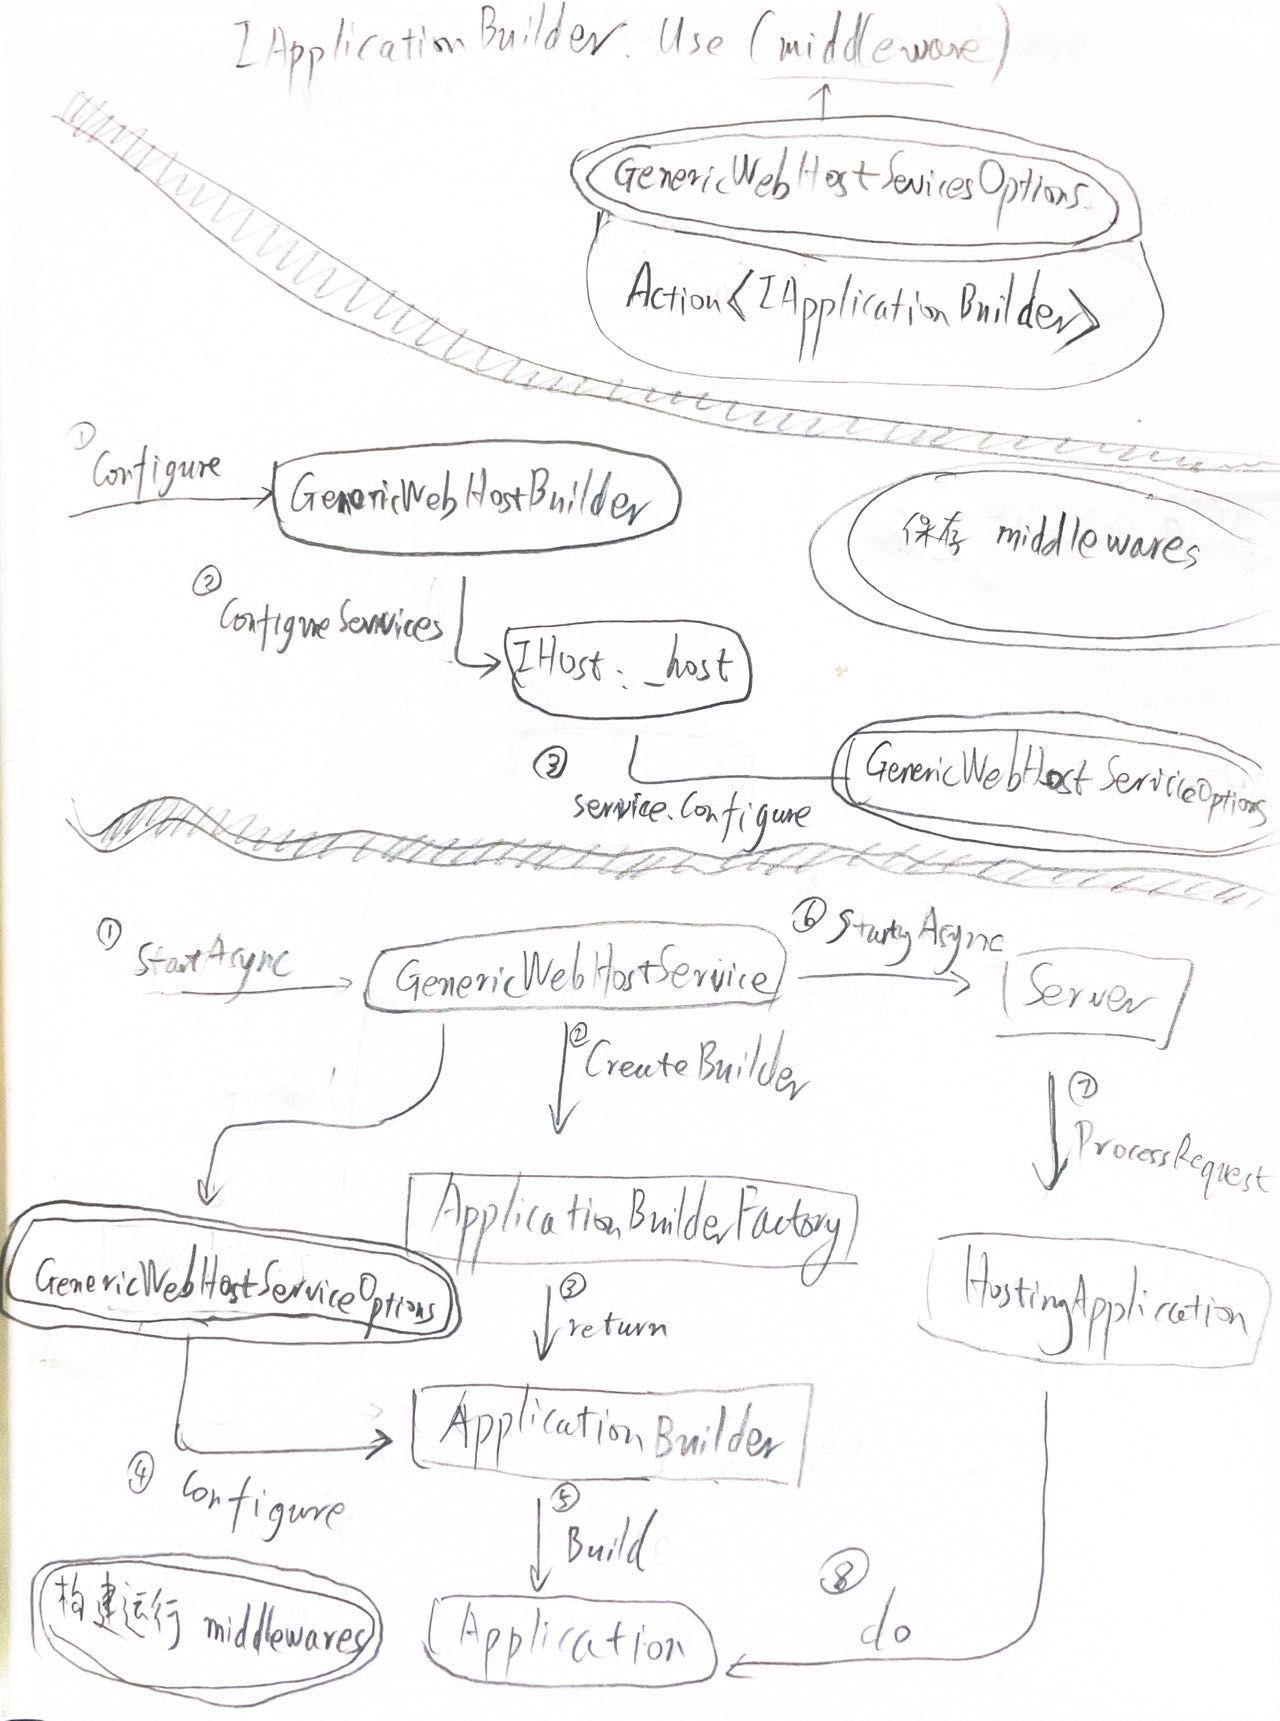 IApplicationBuilder. Use (middleware)
GenericWebHostSevicesOptions.
Action<IApplicationBuilder>
① Configure
GenericWebHostBuilder
保存 middlewares
② ConfigureServices
IHost: _host
③ service.Configure
GenericWebHostServiceOptions
① StartAsync
GenericWebHostService
⑥ StartyAsync
Server
② CreateBuilder
⑦ ProcessRequest
ApplicationBuilderFactory
GenericWebHostServiceOptions
HostingApplication
③ return
ApplicationBuilder
④ Configure
⑤ Build
⑧ do
构建运行 middlewares
Application